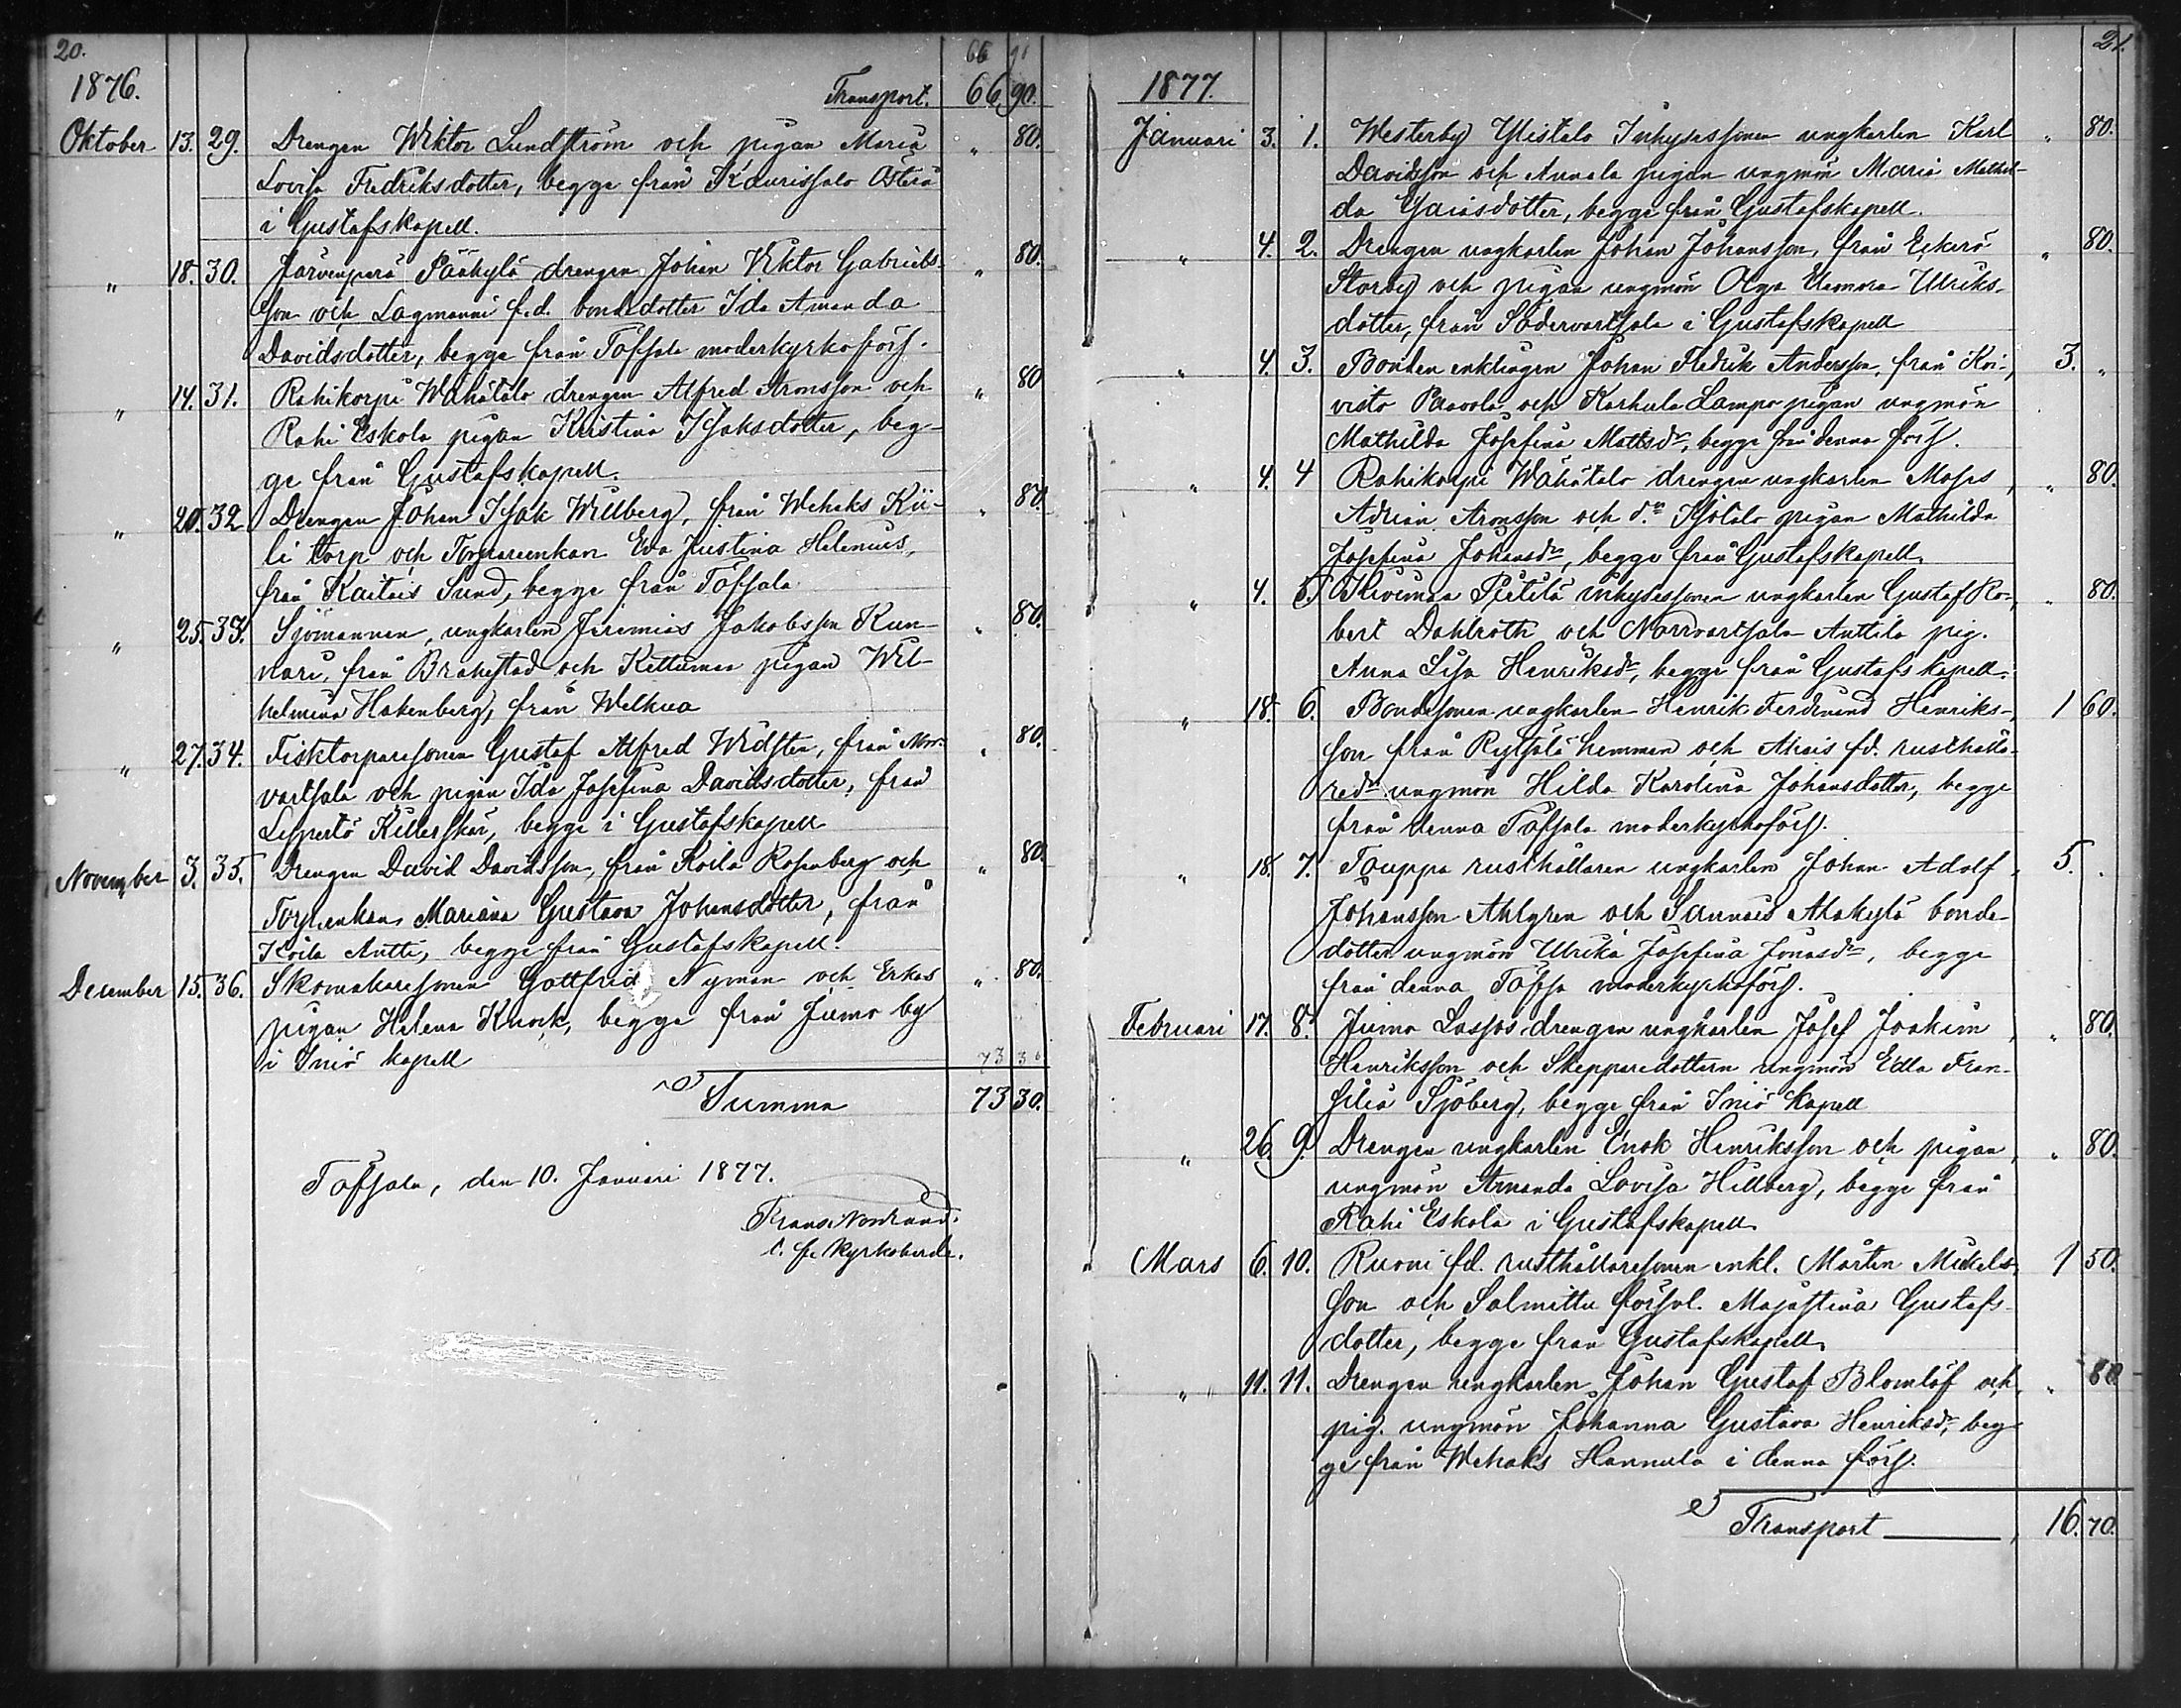 20.
66 90
1876. Transport. 66. 90.
Oktober 13. 29. Drengen Wiktor Lundström och pigan Maria " 80.
Lovisa Fredriksdotter, begge från Kaurissalo Österå
i Gustafskapell.
" 18. 30. Järvenperä Pääkylä drengen Johan Viktor Gabriels- " 80.
son och Lagmanni f.d. bondedotter Ida Amanda
Davidsdotter, begge från Töfsala moderkyrkoförs.
" 14. 31. Rahikorpi Wähätalo drengen Alfred Aronsson och " 80
Rahi Eskola pigan Kristina Isaksdotter, beg-
ge från Gustafskapell.
" 20. 32. Drengen Johan Isak Willberg, från Wehaks Kii- " 80.
li torp och Torpareenkan Eva Justina Helenius,
från Kaitais Sund, begge från Töfsala
" 25. 33. Sjömannen, ungkarlen Jeremias Jakobsson Kun- " 80.
nari, från Brahestad och Kettumaa pigan Wil-
helmina Hakenberg, från Welkua
" 27. 34. Fisktorparesonen Gustaf Alfred Widsten, från Norr- " 80.
vartsala och pigan Ida Josefina Davidsdotter, från
Lypertö Killerskär, begge i Gustafskapell
November 3. 35. Drengen David Davidsson, från Koila Rosenberg och " 80.
Torp.enkan Mariana Gustava Johansdotter, från
Koila Antti, begge från Gustafskapell.
December 15. 36. Skomakaresonen Gottfrid Nyman och Erkas " 80.
pigan Helena Knock, begge från Jumo by
i Iniö kapell 73 30
Summa 73 30.
Töfsala, den 10. Januari 1877.
Frans Nordlund.
t.f. kyrkoherde.
21.
1877.
Januari 3. 1. Westerby Ylistalo Inhysessonen ungkarlen Karl " 80.
Davidsson och Annala pigan ungmön Maria Mathil-
da Gaiasdotter, begge från Gustafskapell.
" 4. 2. Drengen ungkarlen Johan Johansson, från Eckerö " 80.
Storby och pigan ungmön Olga Eleonora Ulriks-
dotter, från Södervartsala i Gustafskapell
" 4. 3. Bonden enklingen Johan Fredrik Andersson, från Koi- 3. "
visto Paavola och Karhula Lampo pigan ungmön
Mathilda Josefina Mattsdr, begge från denna förs.
" 4. 4 Rahikorpi Wähätalo drengen ungkarlen Moses " 80.
Adrian Aronsson och d:o Isotalo pigan Mathilda
Josefina Johansdr, begge från Gustafskapell.
" 4. 5. Kivimaa Pietilä inhysessonen ungkarlen Gustaf Ro- " 80.
bert Dahlroth och Norrvartsala Anttila pig.
Anna Lisa Henriksdr, begge från Gustafs kapell.
" 18. 6. Bondesonen ungkarlen Henrik Ferdinand Henriks- 1 60.
son från Rytsölä hemman och Ahais fd. rusthålla-
redr. ungmön Hilda Karolina Johansdotter, begge
från denna Töfsala moderkyrkoförs.
" 18. 7. Touppa rusthållaren ungkarlen Johan Adolf 5. "
Johansson Ahlgren och Sannais Alakylä bonde-
dottern ungmön Ulrika Josefina Jonasdr, begge
från denna Töfsa moderkyrkoförs.
Februari 17. 8. Jumo Lassas drengen ungkarlen Josef Joakim " 80.
Henriksson och Skepparedottern ungmön Edla Fran-
silia Sjöberg, begge från Iniö kapell
" 26 9. Drengen ungkarlen Enok Henriksson och pigan " 80.
ungmön Amanda Lovisa Hillberg, begge från
Rahi Eskola i Gustafskapell
Mars 6. 10. Ruoni fd. rusthållaresonen enkl. Mårten Mickels- 1 50.
son och Salmittu förs.l. Majastina Gustafs-
dotter, begge från Gustafskapell
" 11. 11. Drengen ungkarlen Johan Gustaf Blomlöf och " 80
pig. ungmön Johanna Gustava Henriksdr, beg-
ge från Wehaks Hannula i denna förs.
Transport 16. 70.